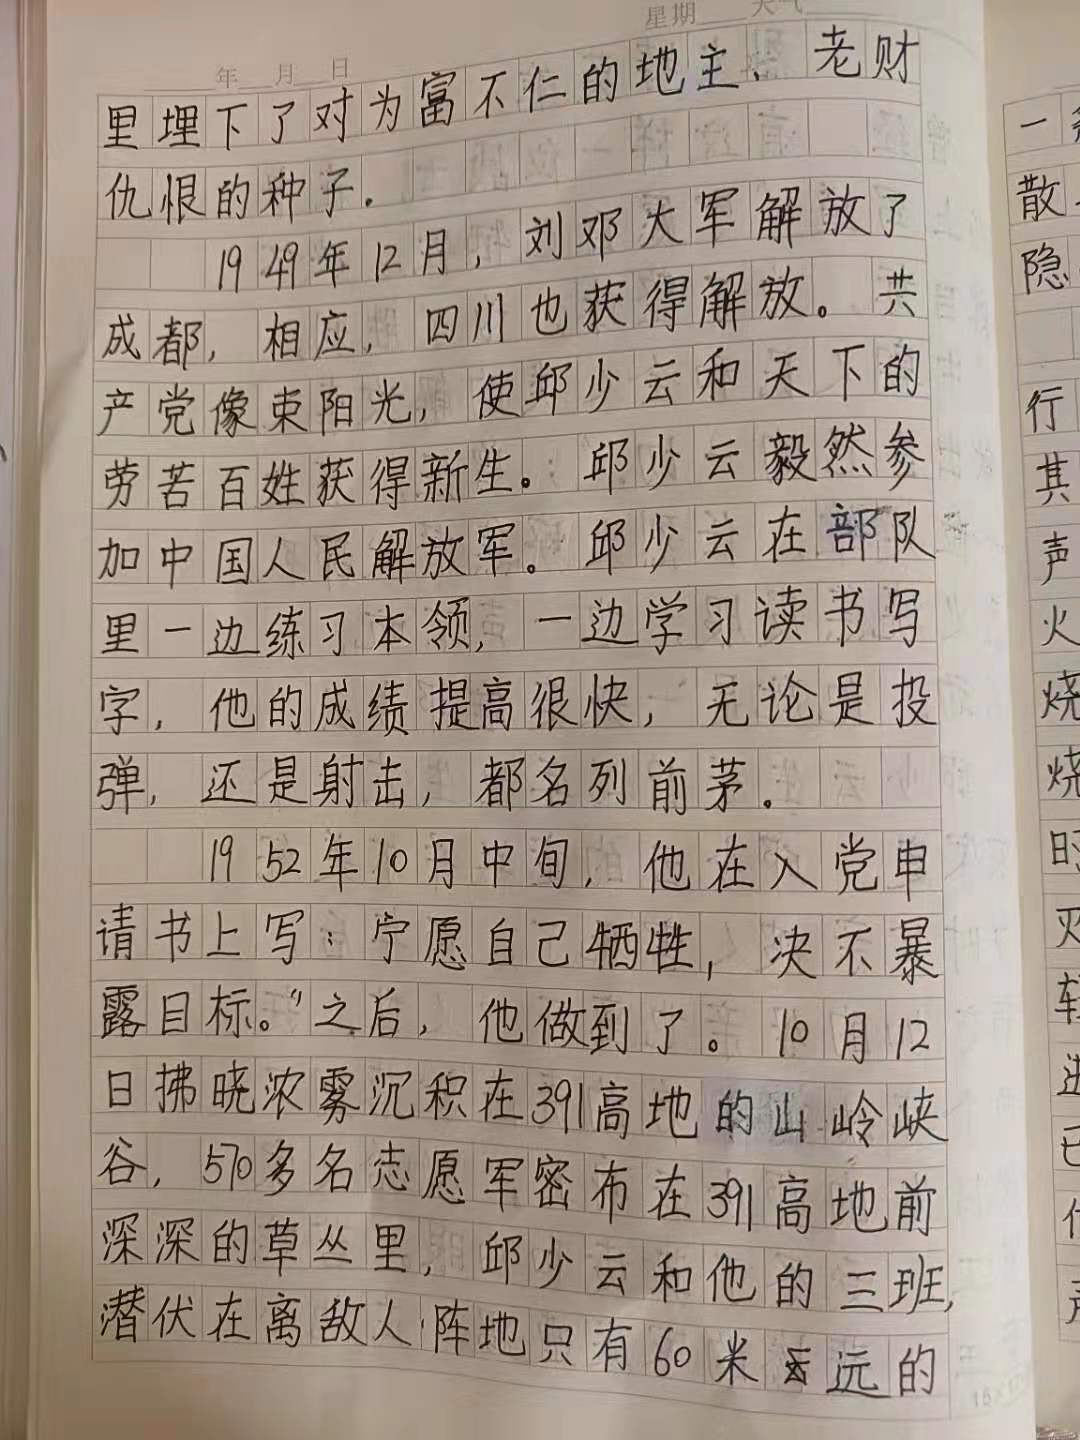 星期 天气
年 月 日
里埋下了对为富不仁的地主、老财
仇恨的种子.
1949年12月,刘邓大军解放了
成都,相应,四川也获得解放。共
产党像束阳光,使邱少云和天下的
劳苦百姓获得新生。邱少云毅然参
加中国人民解放军。邱少云在部队
里一边练习本领,一边学习读书写
字,他的成绩提高很快,无论是投
弹,还是射击,都名列前茅.
1952年10月中旬,他在入党申
请书上写:宁愿自己牺牲,决不暴
露目标。”之后,他做到了。10月12
日拂晓浓雾沉积在391高地的山岭峡
谷,570多名志愿军密布在391高地前
深深的草丛里,邱少云和他的三班,
潜伏在离敌人阵地只有60米远的
一
散
隐
行
其
声
火
烧
烧
时
灭